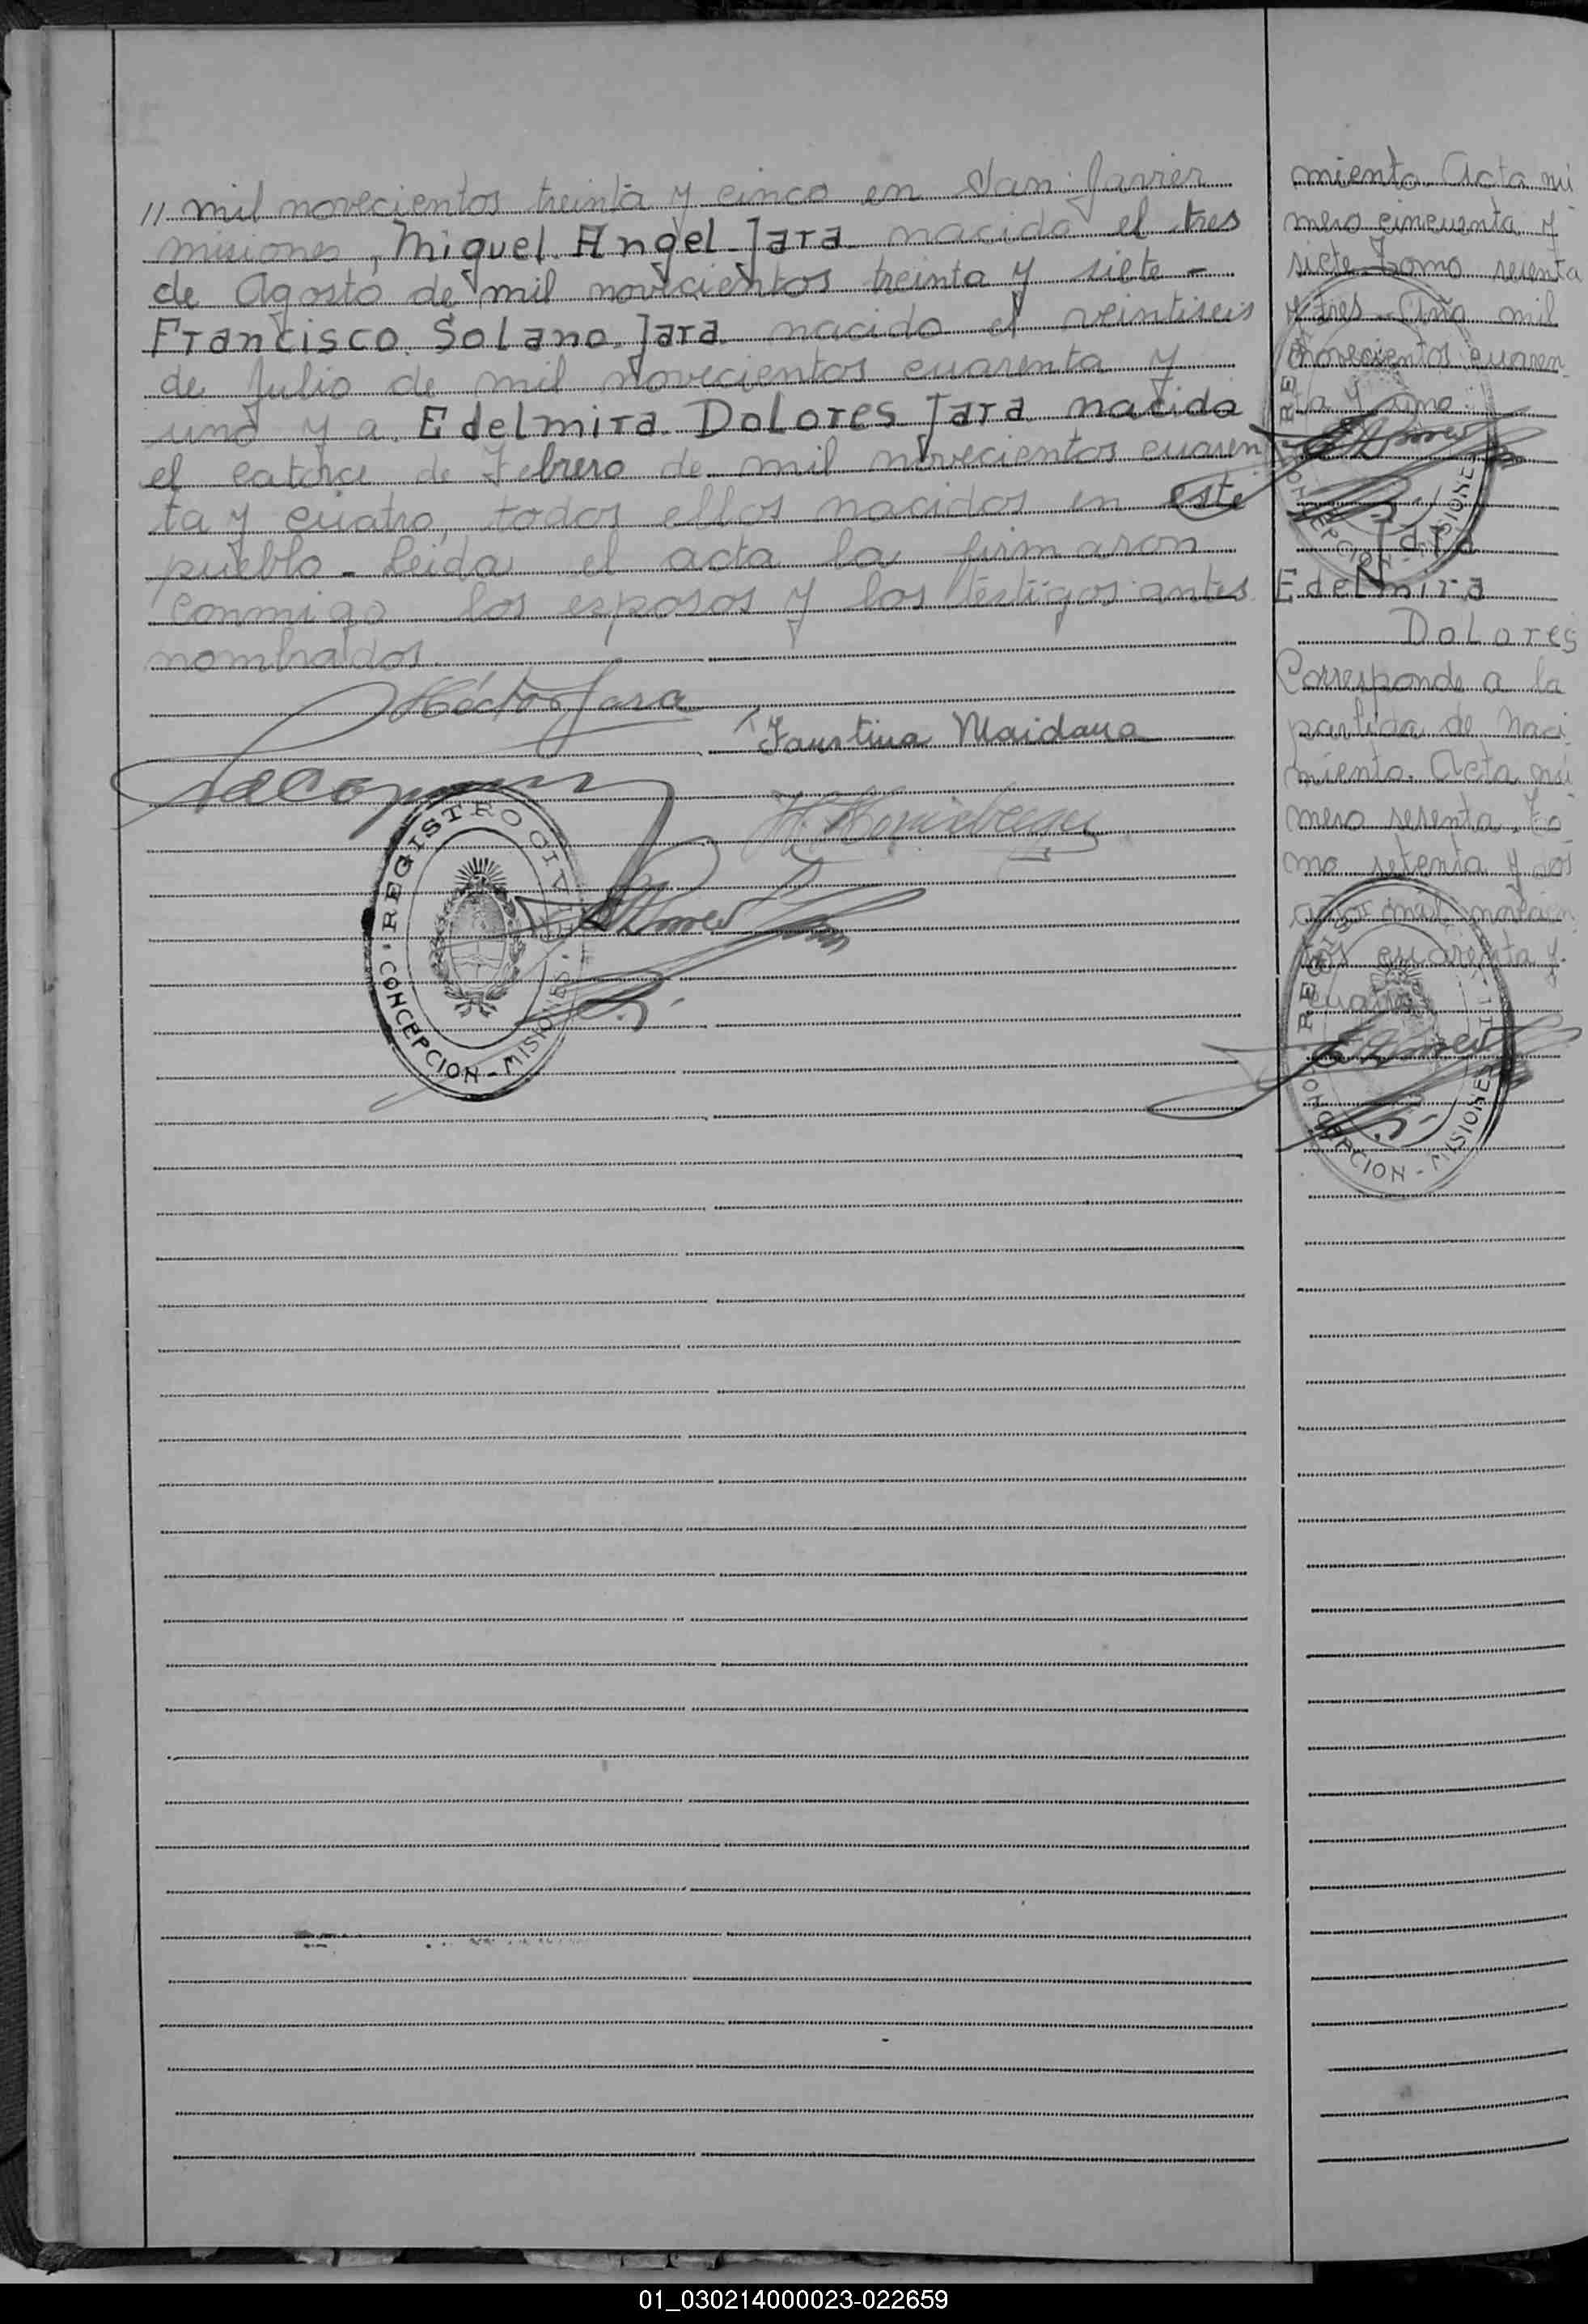 // mil novecientos treinta y cinco en San Javier
misiones, Miguel Angel Jara nacido el tres
de Agosto de mil novecientos treinta y siete -
Francisco Solano Jara nacido el veintiseis
de Julio de mil novecientos cuarenta y
uno y a Edelmira Dolores Jara nacida
el catorce de Febrero de mil novecientos cuaren
ta y cuatro, todos ellos nacidos en este
pueblo - Leida el acta la firmaron
conmigo los esposos y los testigos antes
nombrados.
Héctor Jara
Faustina Maidana
REGISTRO CIVIL
CONCEPCION - MISIONES
miento. Acta nú
mero cincuenta y
siete Tomo sesenta
y tres - Año mil
novecientos cuaren
ta y uno
CONCEPCION - MISIONES
Jara
Edelmira
Dolores
Corresponde a la
partida de Naci
miento. Acta nú
mero sesenta. To
mo setenta y dos
cuarenta y
cuatro
CONCEPCION - MISIONES
01_030214000023-022659